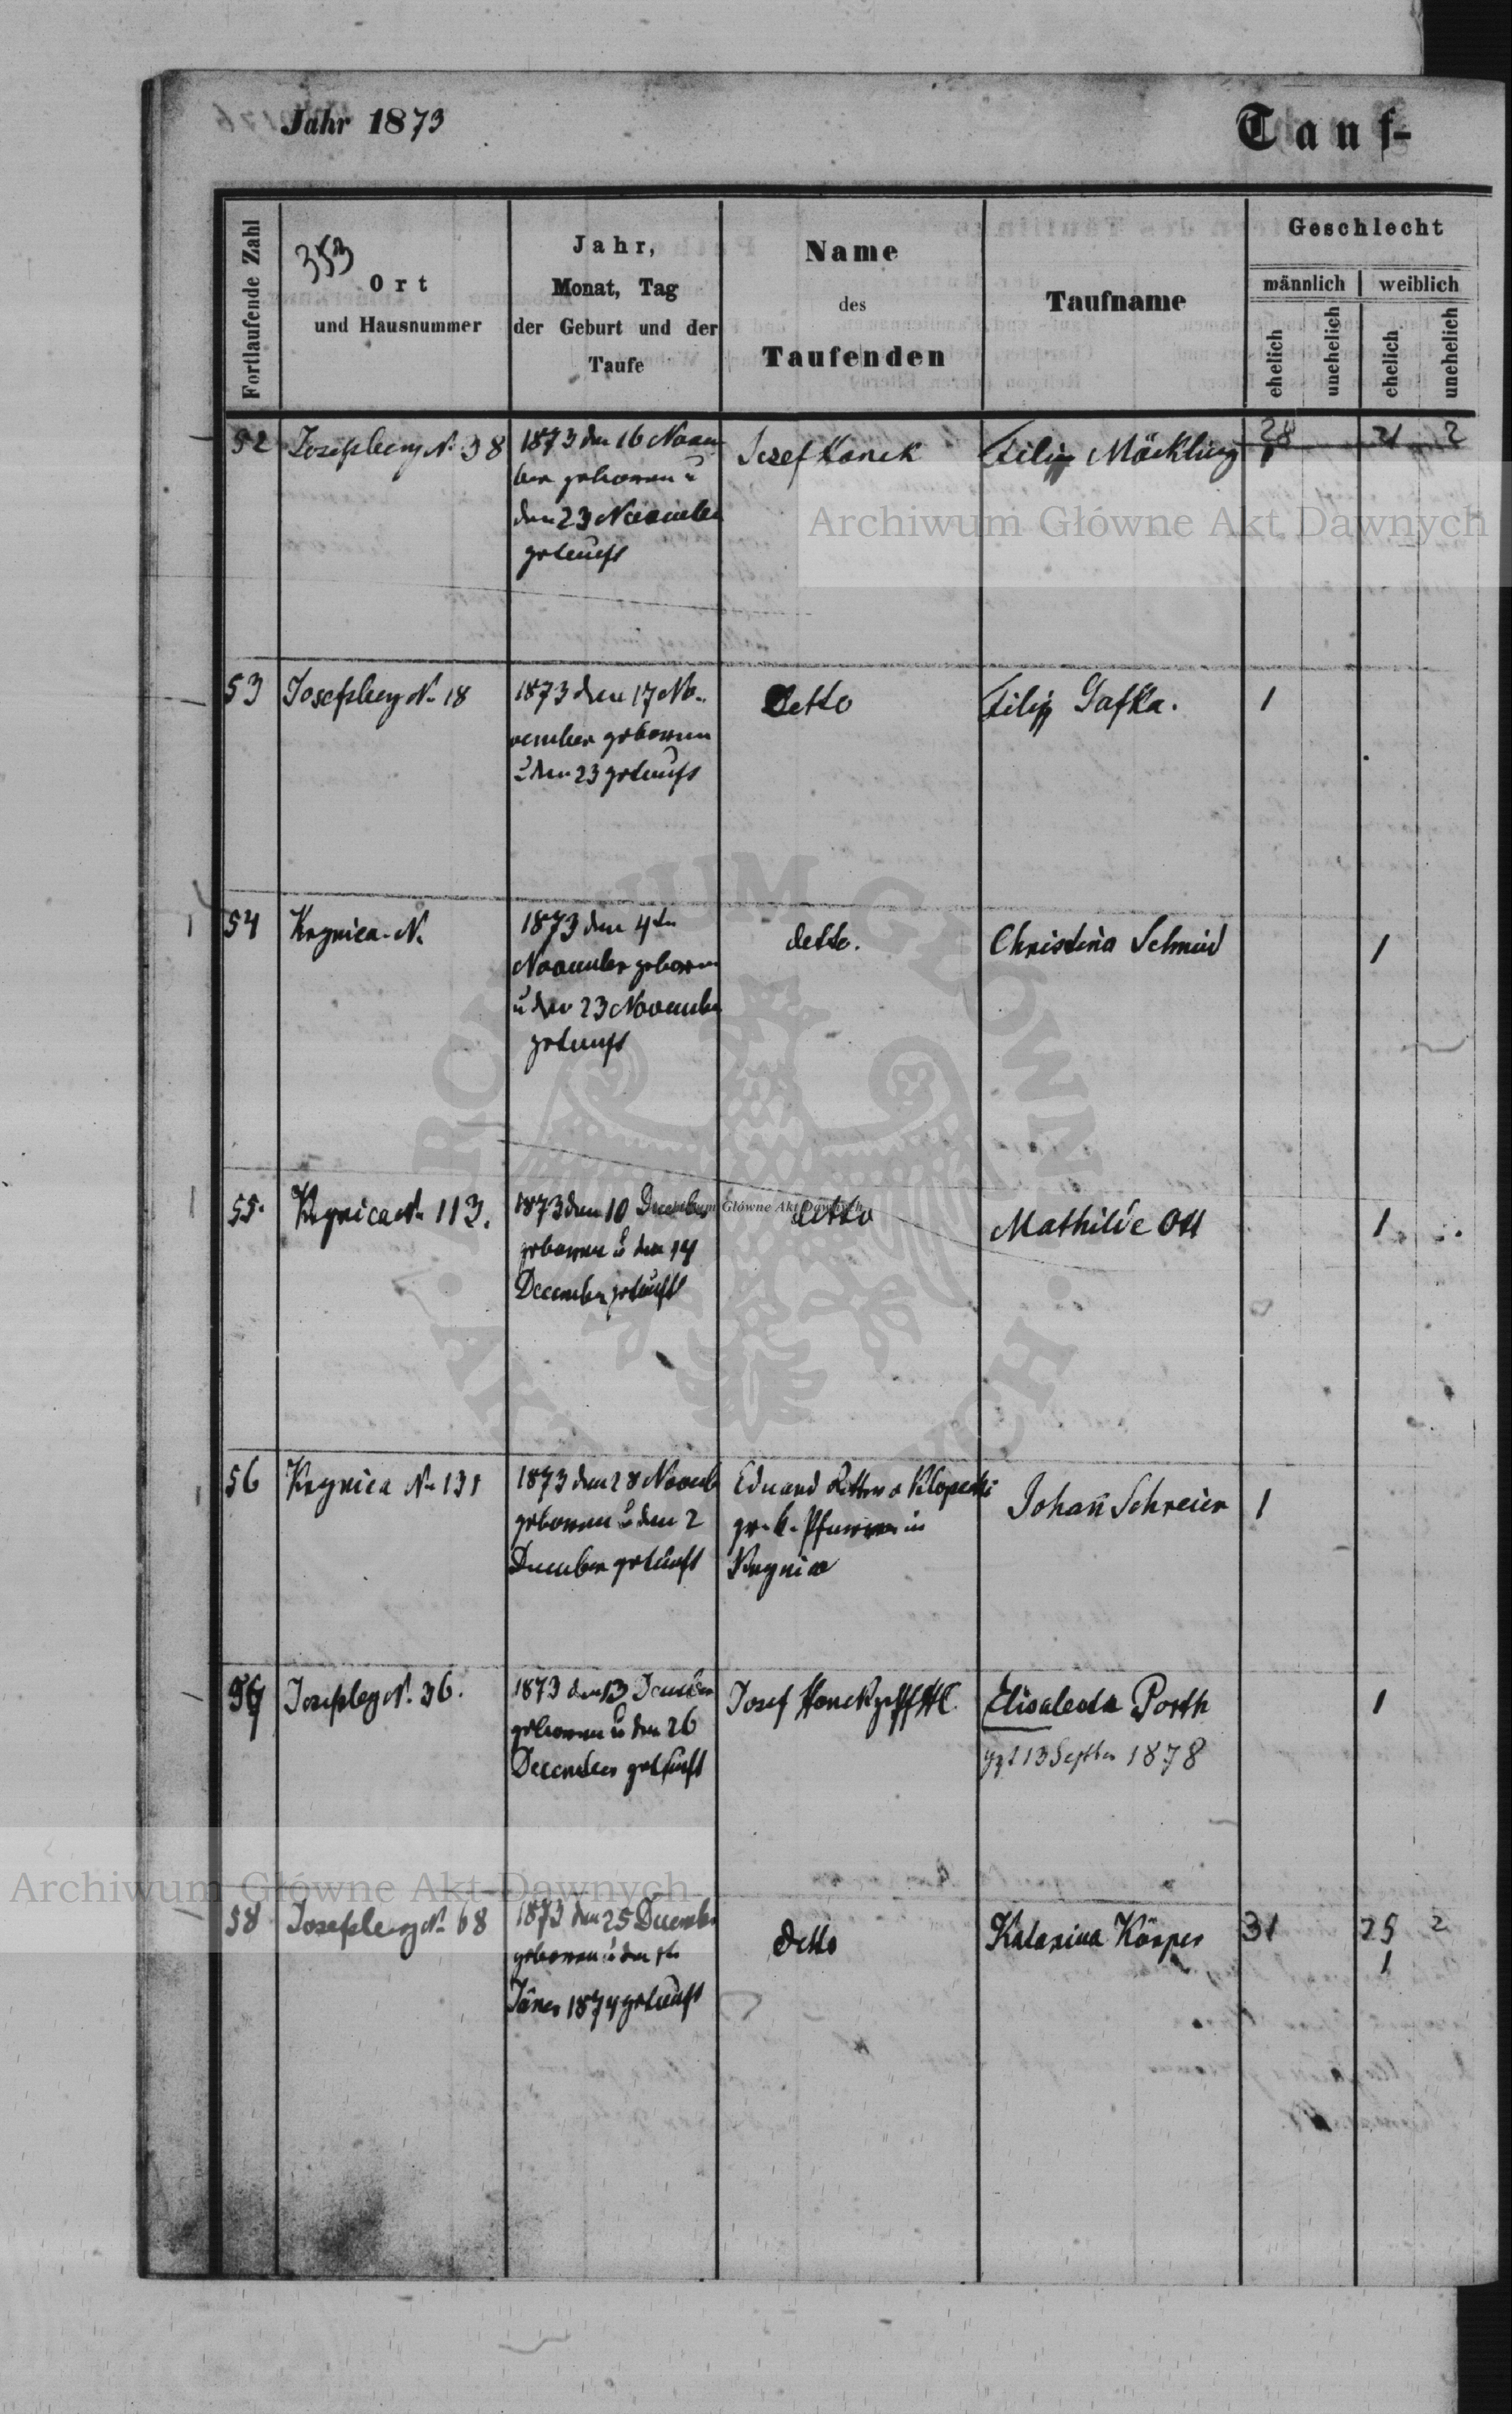 Jahr 1873
Tauf-
Fortlaufende Zahl
353
Ort
und Hausnummer
Jahr,
Monat, Tag
der Geburt und der
Taufe
Name
des
Taufenden
Taufname
Geschlecht
männlich
weiblich
ehelich
unehelich
ehelich
unehelich
28 21 2
52 Josefsberg N. 38
1873 den 16 Novem
ber geboren u
den 23 November
getauft
Josef Honek
Filip Möckling
1
Archiwum Główne Akt Dawnych
53 Josefsberg N. 18
1873 den 17 No-
vember geboren
u den 23 getauft
detto
Filip Gafka.
1
54 Krynica N.
1873 den 4ten
November geboren
u den 23 November
getauft
detto.
Christina Schmid
1
55. Krynica N. 113.
1873 den 10 December
geboren u den 14
December getauft
detto
Mathilde Ott
1
Archiwum Główne Akt Dawnych
56 Krynica N. 131
1873 den 28 Novemb
geboren u den 2
December getauft
Eduard Ritter v Klopecki
gr. k. Pfarrer in
Krynica
Johañ Schreier
1
57 Josefsberg N. 36.
1873 den 13
geboren u den 26
December getauft
Josef Honek
Elisabeta Porth
13 Septber 1878
1
Archiwum Główne Akt Dawnych
58 Josefsberg N. 68
1873 den 25 December
geboren u den
Jäner 1874 getauft
detto
Katarina Körper
31 25 2
1
ARCHIWUM GŁÓWNE AKT DAWNYCH